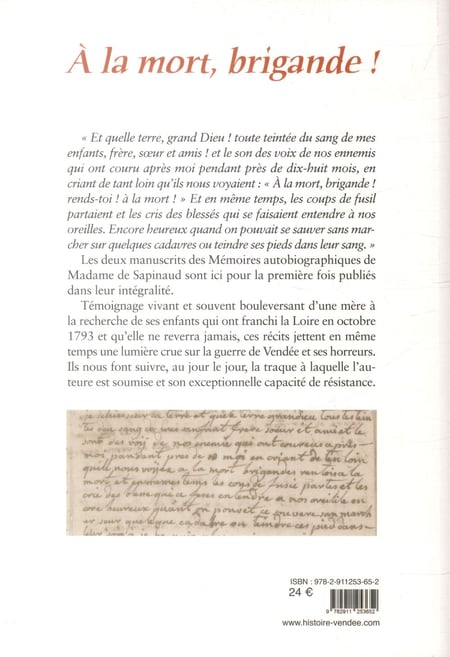 À la mort, brigande !
« Et quelle terre, grand Dieu ! toute teintée du sang de mes
enfants, frère, sœur et amis ! et le son des voix de nos ennemis
qui ont couru après moi pendant près de dix-huit mois, en
criant de tant loin qu'ils nous voyaient : « À la mort, brigande !
rends-toi ! à la mort ! » Et en même temps, les coups de fusil
partaient et les cris des blessés qui se faisaient entendre à nos
oreilles. Encore heureux quand on pouvait se sauver sans mar-
cher sur quelques cadavres ou teindre ses pieds dans leur sang. »
Les deux manuscrits des Mémoires autobiographiques de
Madame de Sapinaud sont ici pour la première fois publiés
dans leur intégralité.
Témoignage vivant et souvent bouleversant d'une mère à
la recherche de ses enfants qui ont franchi la Loire en octobre
1793 et qu'elle ne reverra jamais, ces récits jettent en même
temps une lumière crue sur la guerre de Vendée et ses horreurs.
Ils nous font suivre, au jour le jour, la traque à laquelle l'au-
teure est soumise et son exceptionnelle capacité de résistance.
sur la terre et quele terre grandieu
sang frere soeur et ami et le
sont des voij de nos
mois pandant pres de 18 moi en criant de ten loin
a la mort brigandes la
mort et les coups de fusie partes et les
crie des a nos oreille en
core heureux quant on
sur cadavre ou teindre
ISBN : 978-2-911253-65-2
24 €
9 782911 253652
www.histoire-vendee.com